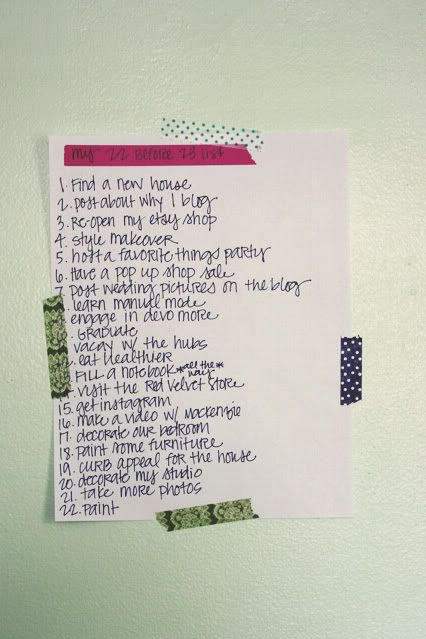 my 22 before 23 list
1. Find a new house
2. post about why I blog
3. Re-open my etsy shop
4. style makeover
5. host a favorite things party
6. Have a pop up shop sale
7. post wedding pictures on the blog
. learn manual mode
engage in devo more
. Graduate
vacay w/ the hubs
. eat healthier
. Fill a notebook *all the way*
. visit the Red velvet store
15. get instagram
16. make a video w/ mackenzie
17. decorate our bedroom
18. paint some furniture
19. curb appeal for the house
20. decorate my studio
21. take more photos
22. paint